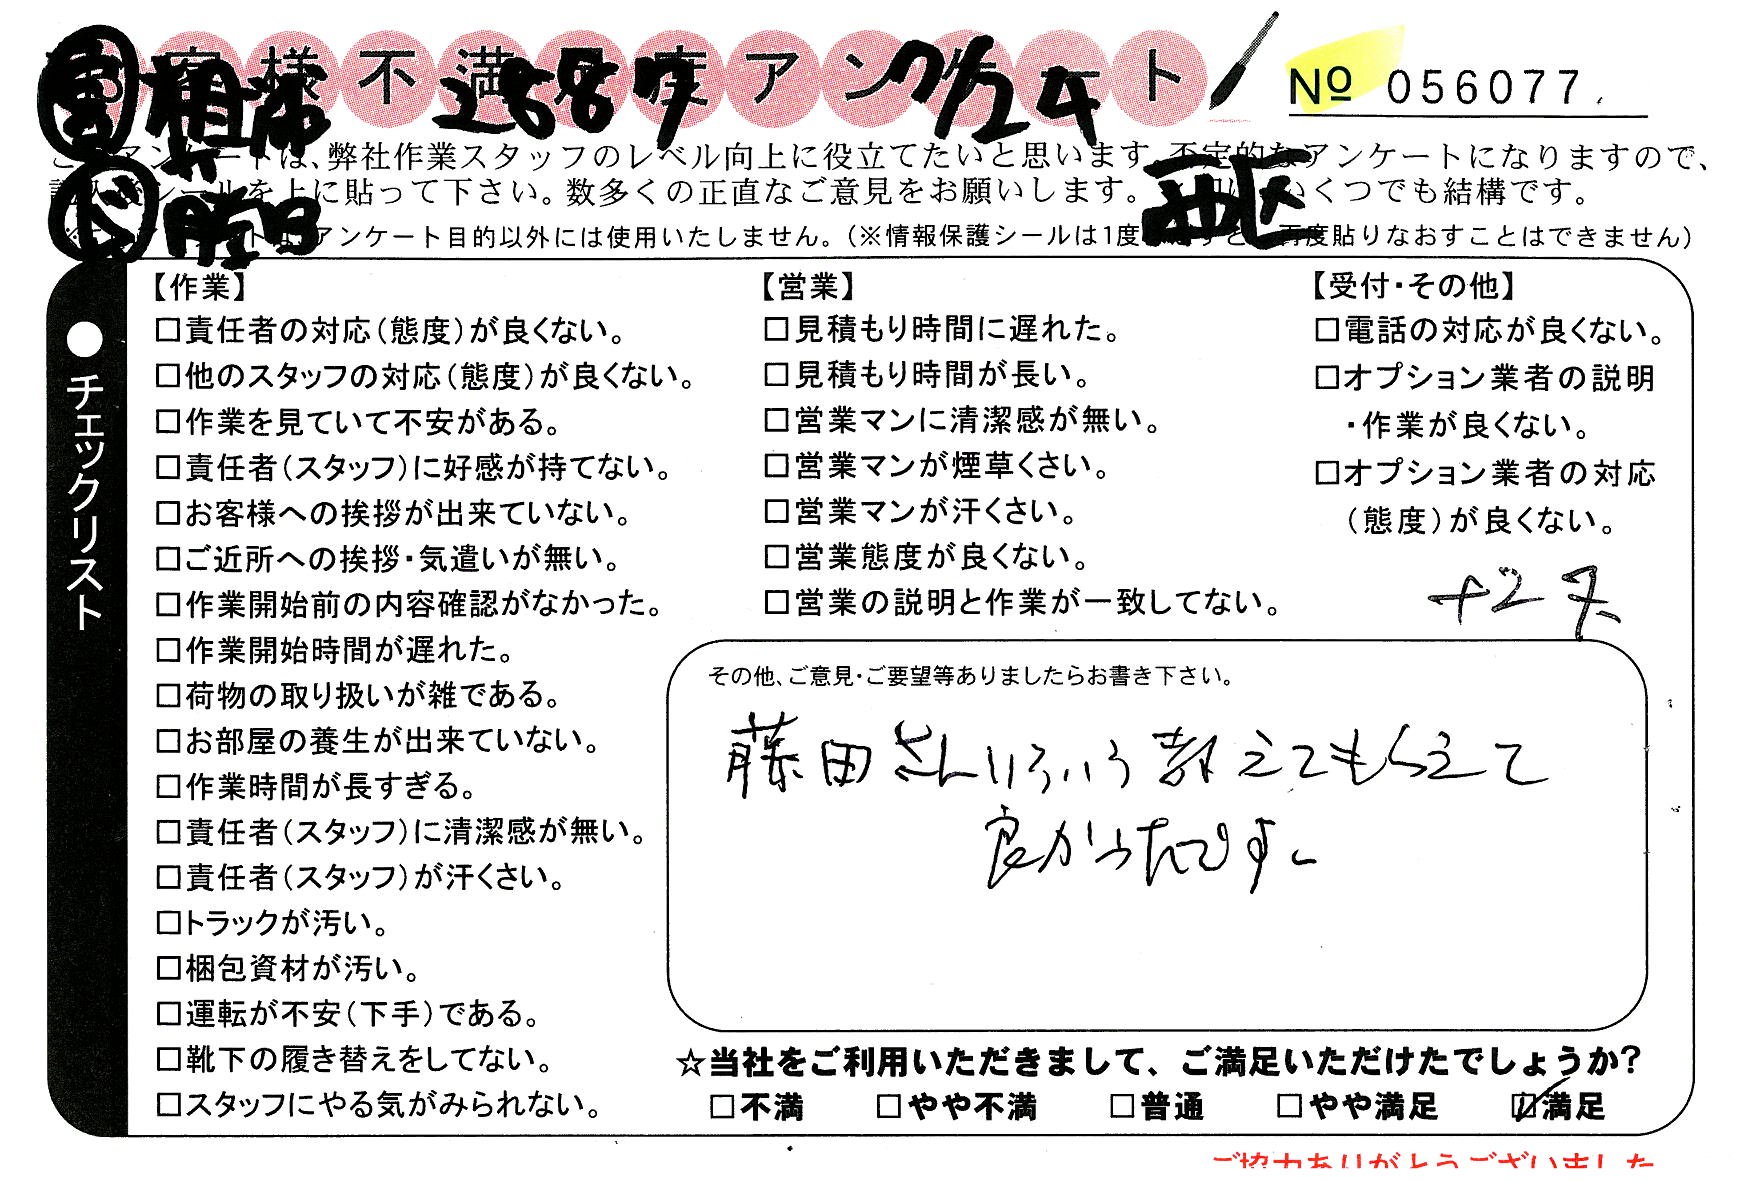 お客様不満足度アンケート
№ 056077
2887 7/24
西区
このアンケートは、弊社作業スタッフのレベル向上に役立てたいと思います。不定的なアンケートになりますので、
シールを上に貼って下さい。数多くの正直なご意見をお願いします。 いくつでも結構です。
アンケート目的以外には使用いたしません。(※情報保護シールは1度 再度貼りなおすことはできません)
●チェックリスト
【作業】
□責任者の対応(態度)が良くない。
□他のスタッフの対応(態度)が良くない。
□作業を見ていて不安がある。
□責任者(スタッフ)に好感が持てない。
□お客様への挨拶が出来ていない。
□ご近所への挨拶・気遣いが無い。
□作業開始前の内容確認がなかった。
□作業開始時間が遅れた。
□荷物の取り扱いが雑である。
□お部屋の養生が出来ていない。
□作業時間が長すぎる。
□責任者(スタッフ)に清潔感が無い。
□責任者(スタッフ)が汗くさい。
□トラックが汚い。
□梱包資材が汚い。
□運転が不安(下手)である。
□靴下の履き替えをしてない。
□スタッフにやる気がみられない。
【営業】
□見積もり時間に遅れた。
□見積もり時間が長い。
□営業マンに清潔感が無い。
□営業マンが煙草くさい。
□営業マンが汗くさい。
□営業態度が良くない。
□営業の説明と作業が一致してない。
【受付・その他】
□電話の対応が良くない。
□オプション業者の説明
・作業が良くない。
□オプション業者の対応
(態度)が良くない。
その他、ご意見・ご要望等ありましたらお書き下さい。
藤田さんいろいろ教えてもらえて
良かったです。
☆当社をご利用いただきまして、ご満足いただけたでしょうか?
□不満 □やや不満 □普通 □やや満足 ☑満足
ご協力ありがとうございました